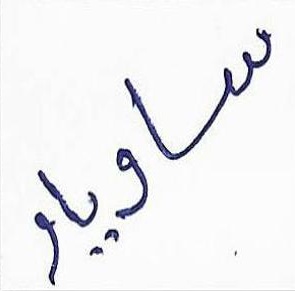 ساویار